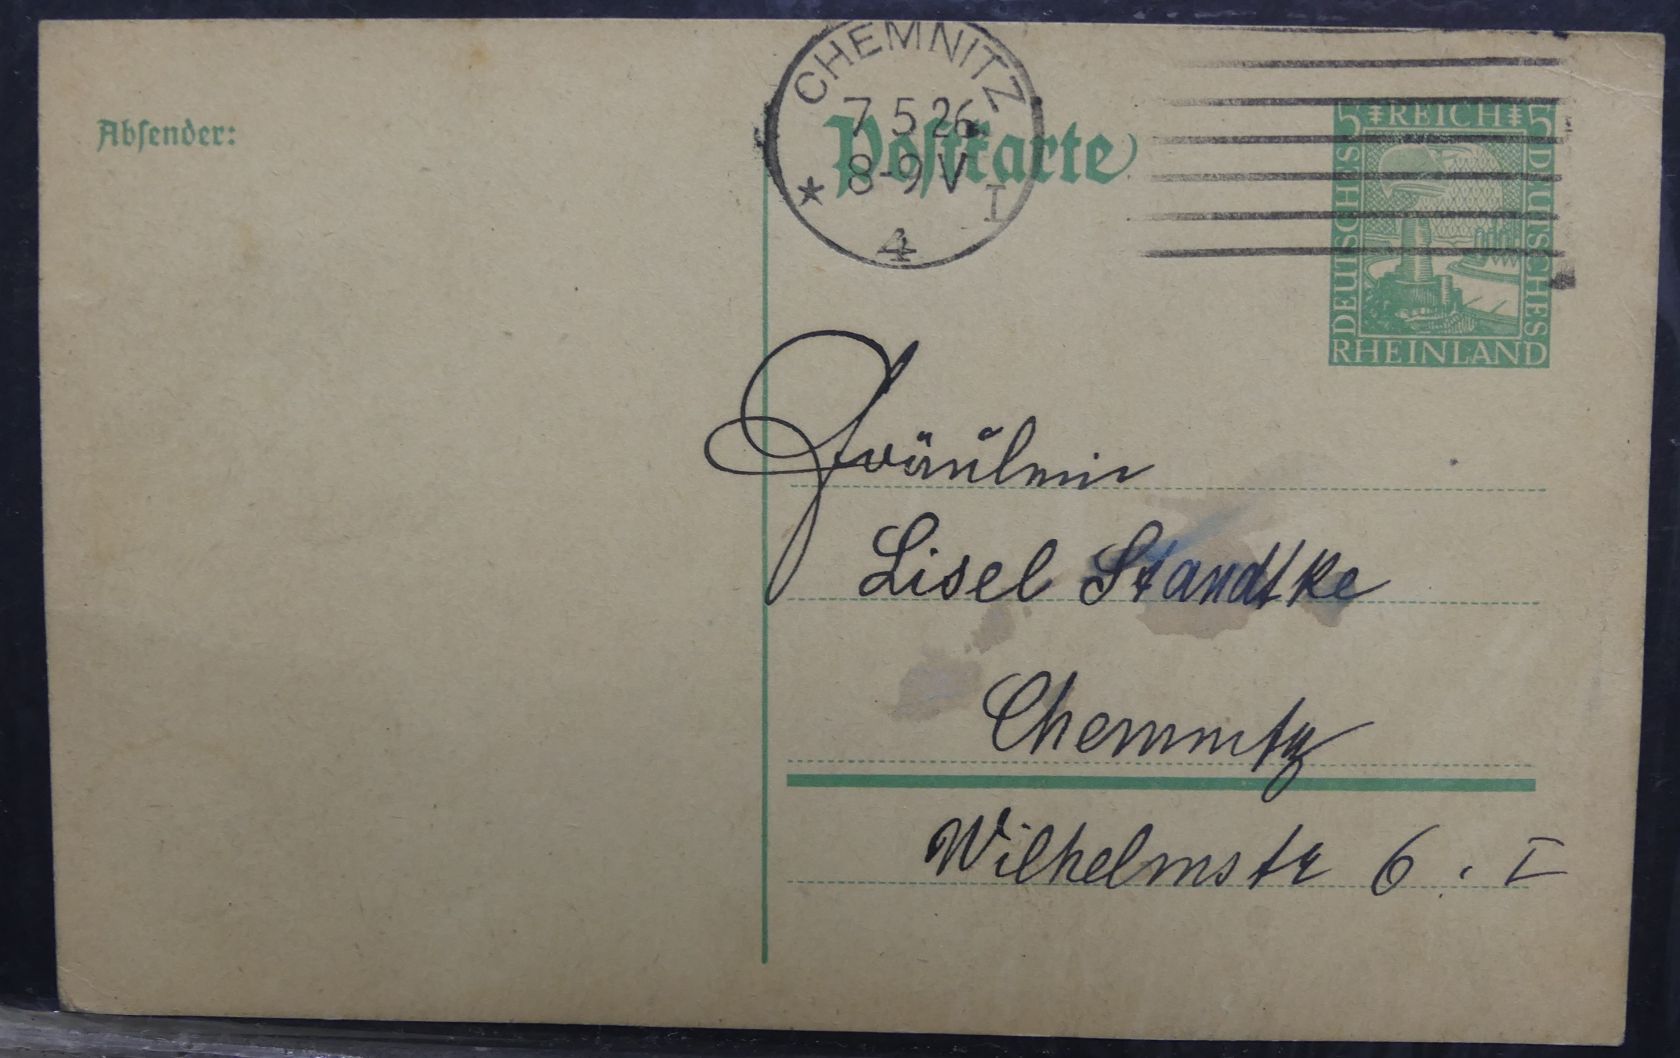 CHEMNITZ
7 5 26
8-9 V
* I
4
Abſender:
Poſtkarte
5 REICH 5
DEUTSCHES
DEUTSCHES
RHEINLAND
Fräulein
Lisel Standtke
Chemnitz
Wilhelmstr 6. I